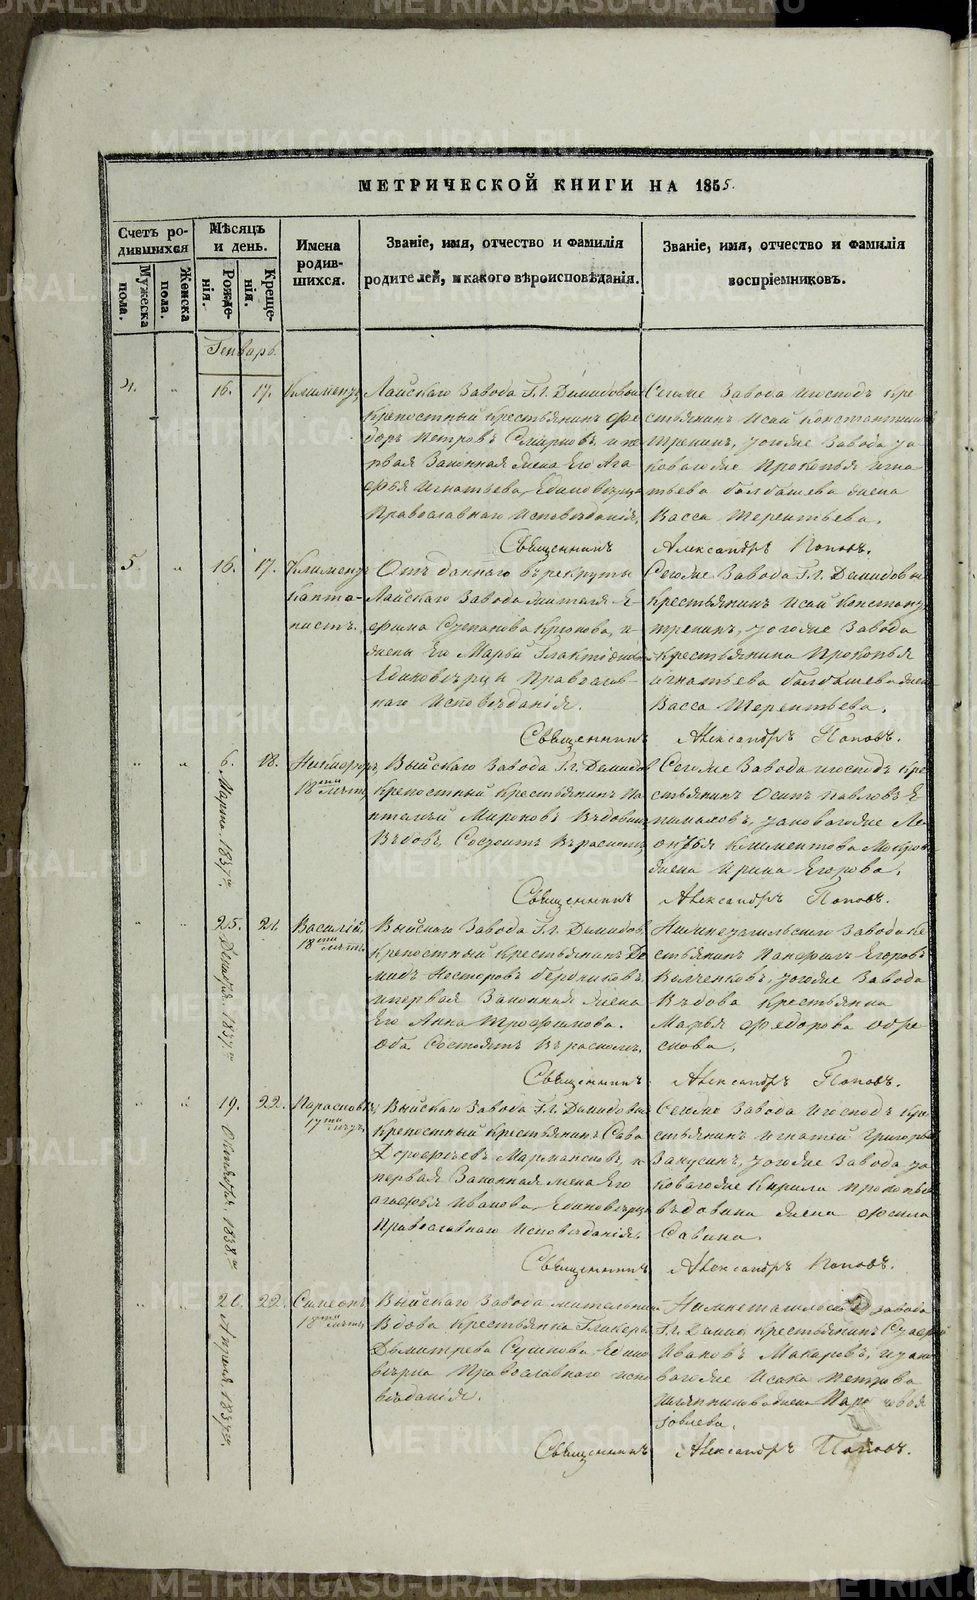 МЕТРИЧЕСКОЙ КНИГИ НА 1855.
Счетъ ро-
дившихся
Мужеска пола.
Женска пола.
Мѣсяцъ
и день.
Рожде-
нія.
Креще-
нія.
Имена
родив-
шихся.
Званіе, имя, отчество и фамилія
родителей, и какого вѣроисповѣданія.
Званіе, имя, отчество и фамилія
воспріемниковъ.
Генварь.
4. " 16. 17. Климентъ
Лайскаго Завода Г.г. Демидовыхъ
крѣпостный крестьянинъ Фе-
доръ Петровъ Смирновъ и пе-
рвая Законная жена Его Ага-
фья Игнатьева, Единовѣрцы
Православнаго Исповѣданія.
Сегоже Завода Господъ кре-
стьянинъ Исай Константиновъ
Тренинъ, тогоже Завода за-
коваго же Прокопья Игна-
тьева балбашева жена
Васса Терентьева.
Священникъ Александръ Поповъ.
5. " 16. 17. Климентъ
канто-
нистъ.
Отъ даннаго въ рекруты
Лайскаго Завода жителя Е-
фима Степанова Крюкова, и
жены Его Марьи
Единовѣрцы Православ-
наго Исповѣданія.
Сегоже Завода Г.г. Демидовыхъ
крестьянинъ Исай Констант.
Тренинъ, тогоже Завода
крестьянина Прокопья
Игнатьева балбашева жена
Васса Терентьева.
Священникъ Александръ Поповъ.
" " 6. Марта 1837го 18. Никифоръ,
18ти лѣтъ
Выйскаго Завода Г.г. Демидов.
крѣпостный крестьянинъ Па-
нтелѣй Мироновъ Вдовинъ
Вдовъ, Состоитъ въ расколѣ.
Сегоже Завода Господъ кре-
стьянинъ Осипъ Павловъ
жена Ирина Егорова.
Священникъ Александръ Поповъ.
" 25. Декабря 1837го 21. Василій,
18ти лѣтъ
Выйскаго Завода Г.г. Демидов.
крѣпостный крестьянинъ Де-
мидъ Несторовъ бердниковъ,
и первая Законная жена
Его Анна Трофимова.
Оба Состоятъ въ расколѣ.
Нижнетагильскаго Завода кре-
стьянинъ Егоровъ
Волченковъ, тогоже Завода
Вдова крестьянка
Марья Федорова Обре-
скова.
Священникъ Александръ Поповъ.
" " 19. Октября 1838го 22. Парасковья,
17ти лѣтъ
Выйскаго Завода Г.г. Демидовыхъ
крѣпостный крестьянинъ Сава
Дорофѣевъ и
первая Законная жена Его
Агафья Иванова, Единовѣрцы
Православнаго Исповѣданія.
Сегоже Завода Господъ кре-
стьянинъ Игнатей Григорьевъ
Закусинъ, тогоже Завода за-
коваго же Кирила Прокопьева
вдовина жена
Савина.
Священникъ Александръ Поповъ.
" " 26. Апреля 1837го 22. Симеонъ,
18ти лѣтъ
Выйскаго Завода жительница
Вдова крестьянка Гликерья
Дьмитрева Сушкова Едино-
вѣрца Православнаго испо-
вѣданія.
Нижнетагильскаго завода
Г.г. Демид. крестьянинъ
Ивановъ Макаровъ,
Исака Петрова
жена Парасковья
Іовлева.
Священникъ Александръ Поповъ.
METRIKI.GASO-URAL.RU